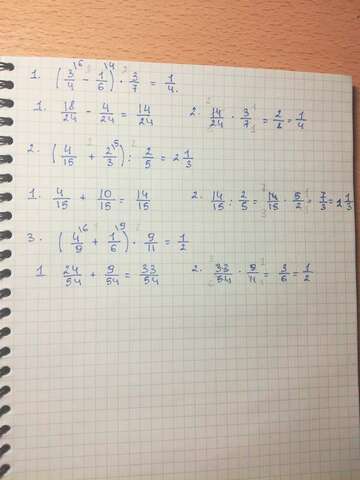 1. (3/4\6 - 1/6\4) · 3/7 = 1/4.
1. 18/24 - 4/24 = 14/24 2. 14/24 · 3/7 = 2/8 = 1/4
2. (4/15 + 2/3\5) : 2/5 = 2 1/3
1. 4/15 + 10/15 = 14/15 2. 14/15 : 2/5 = 14/15 · 5/2 = 7/3 = 2 1/3
3. (4/9\6 + 1/6\9) · 9/11 = 1/2
1 24/54 + 9/54 = 33/54 2. 33/54 · 9/11 = 3/6 = 1/2